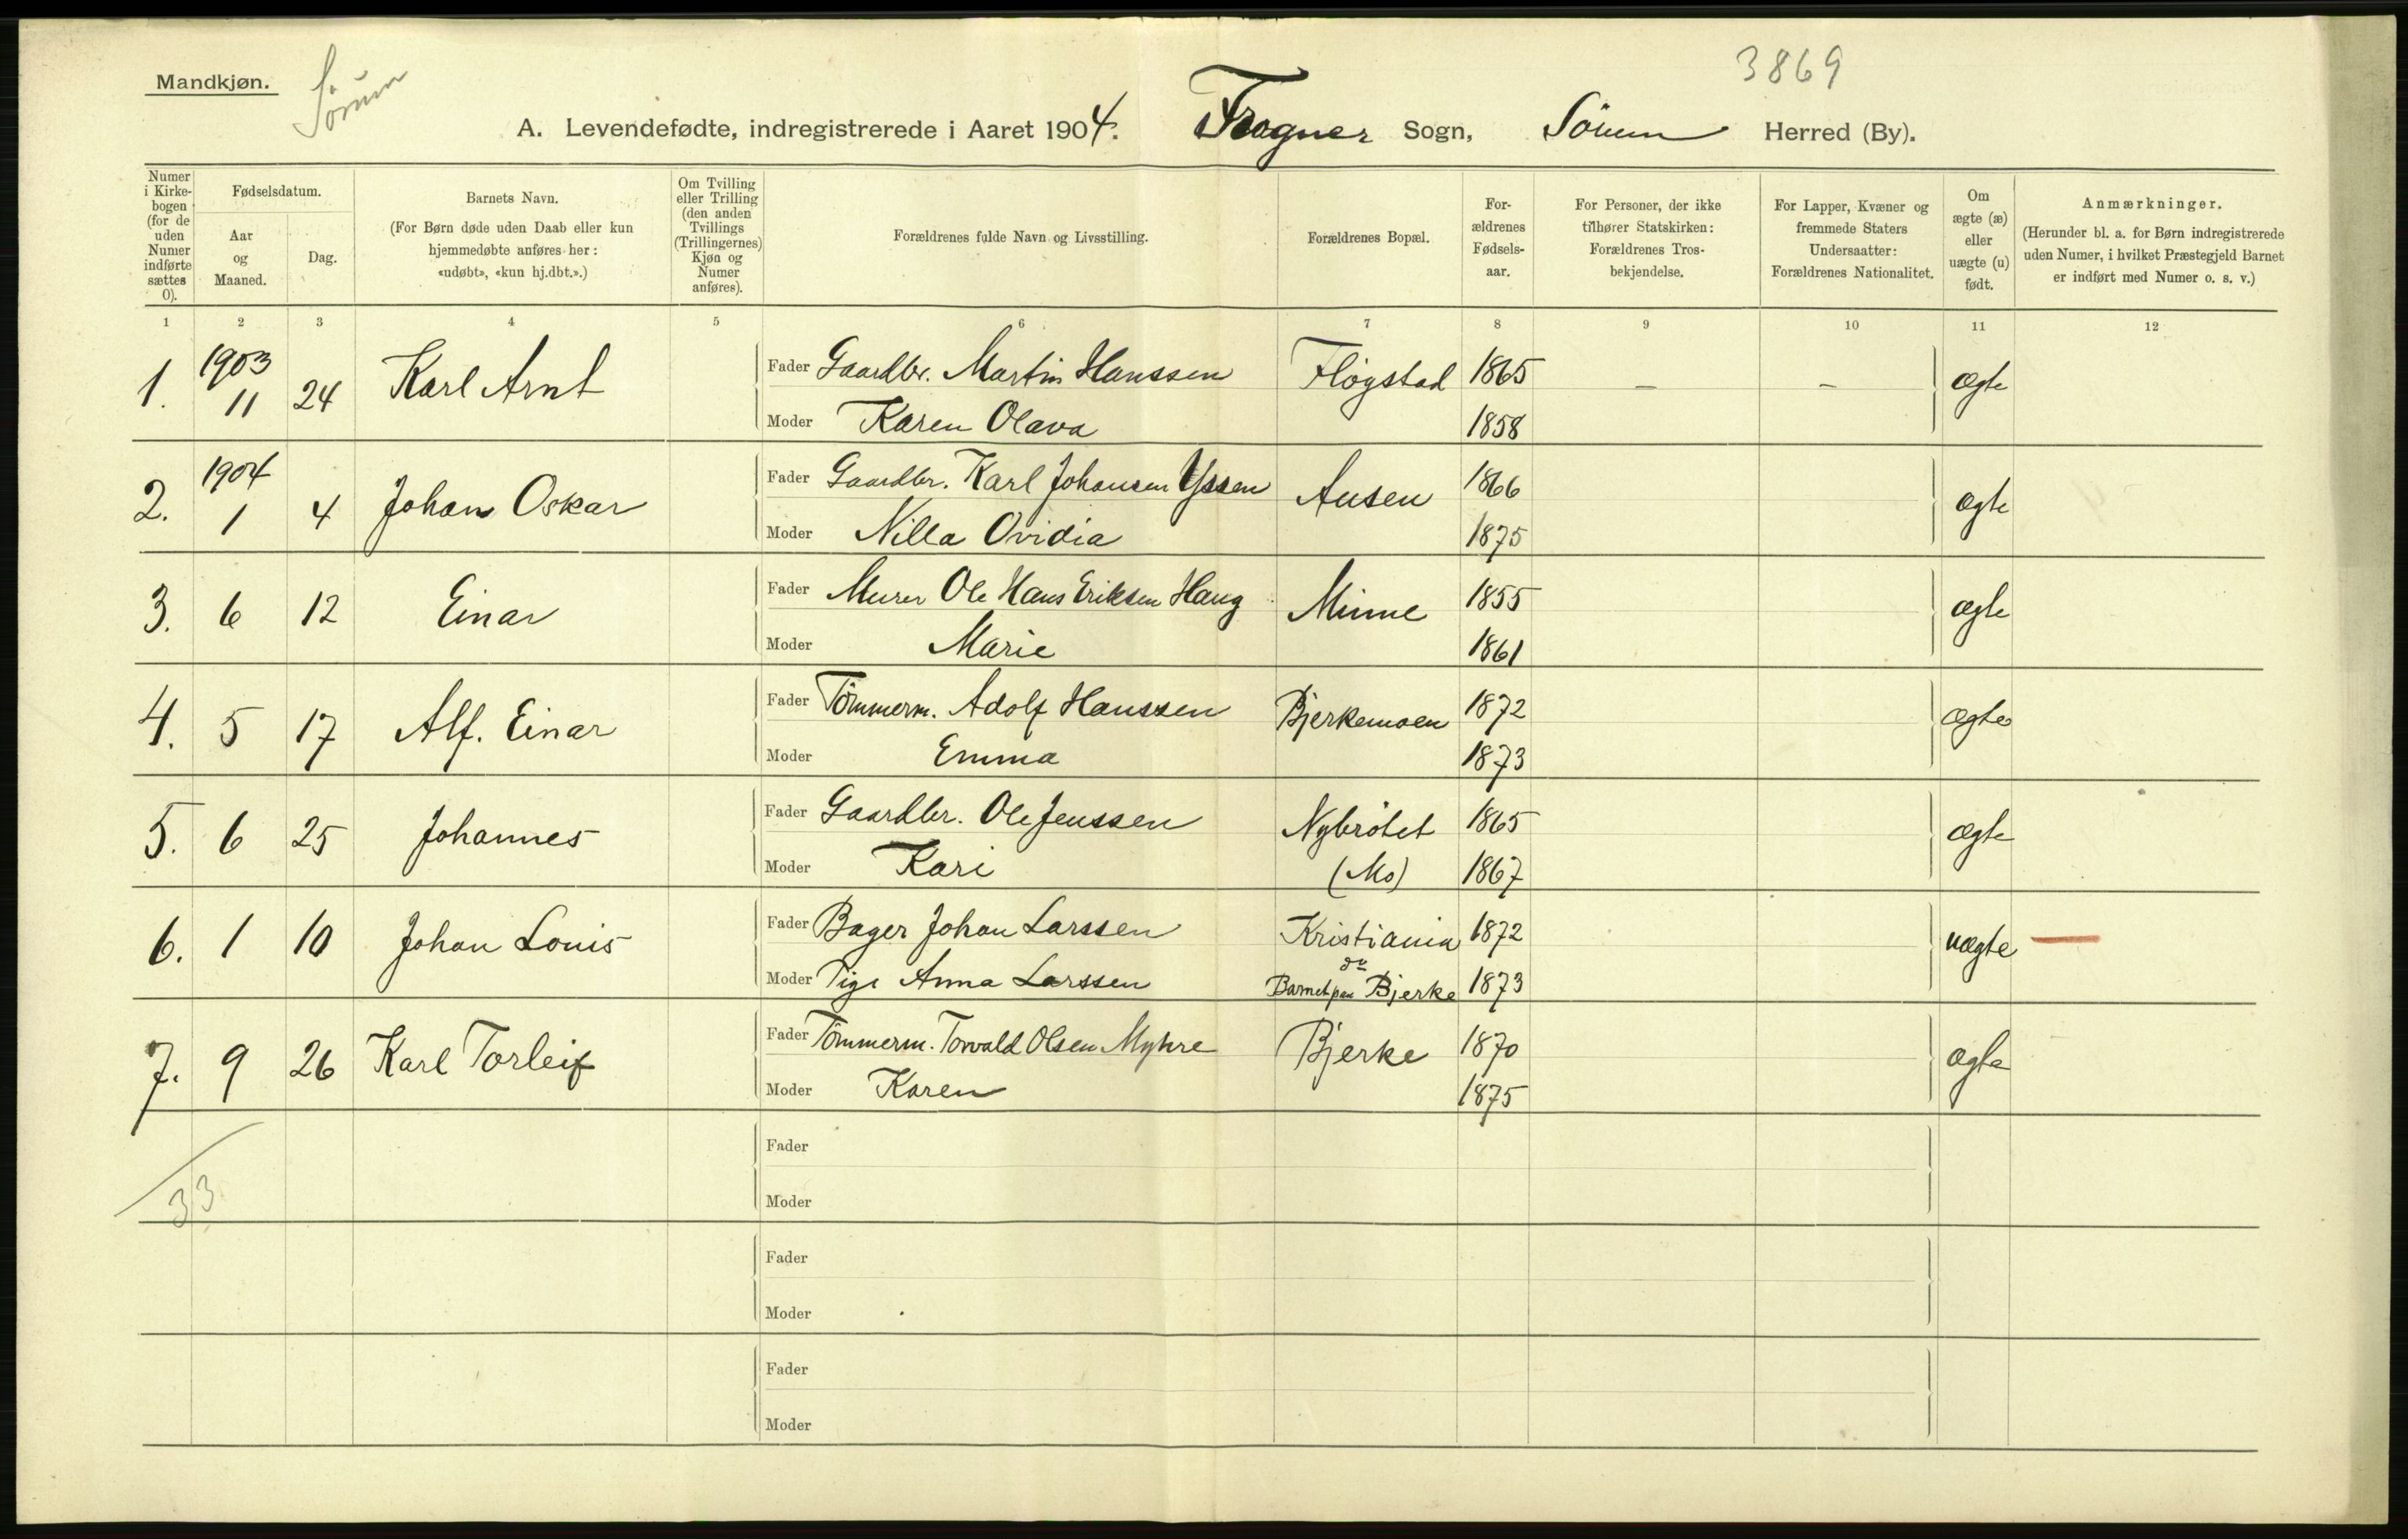 3869
Mandkjøn.
Sörum
A. Levendefødte, indregistrerede i Aaret 1904. Frogner Sogn, Sörum Herred (By).
Numer i Kirke-bogen (for de uden Numer indførte sættes 0).
Fødselsdatum.
Aar og Maaned.
Dag.
Barnets Navn.
(For Børn døde uden Daab eller kun hjemmedøbte anføres her: «udøbt», «kun hj.dbt.».)
Om Tvilling eller Trilling (den anden Tvillings (Trillingernes) Kjøn og Numer anføres).
Forældrenes fulde Navn og Livsstilling.
Forældrenes Bopæl.
For-ældrenes Fødsels-aar.
For Personer, der ikke tilhører Statskirken: Forældrenes Tros-bekjendelse.
For Lapper, Kvæner og fremmede Staters Undersaatter: Forældrenes Nationalitet.
Om ægte (æ) eller uægte (u) født.
Anmærkninger.
(Herunder bl. a. for Børn indregistrerede uden Numer, i hvilket Præstegjeld Barnet er indført med Numer o. s. v.)
1 2 3 4 5 6 7 8 9 10 11 12
1903
1. 11 24 Karl Arnt Fader Gaardbr. Martin Hanssen Flogstad 1865 – – ægte
Moder Karen Olava 1858
1904
2. 1 4 Johan Oskar Fader Gaardbr. Karl Johansen Yssen Ausen 1866 ægte
Moder Nilla Ovidia 1875
3. 6 12 Einar Fader Murer Ole Hans Eriksen Haug Minne 1855 ægte
Moder Marie 1861
4. 5 17 Alf. Einar Fader Tömmerm. Adolf Hanssen Bjerkemoen 1872 ægte
Moder Emma 1873
5. 6 25 Johannes Fader Gaardbr. Ole Jenssen Nybrötet 1865 ægte
Moder Kari (Mo) 1867
6. 1 10 Johan Louis Fader Bager Johan Larssen Kristiania 1872 uægte
do
Moder Pige Anna Larssen Barnet paa Bjerke 1873
7. 9 26 Karl Torleif Fader Tömmerm. Torvald Olsen Myhre Bjerke 1870 ægte
Moder Karen 1875
Fader
33
Moder
Fader
Moder
Fader
Moder